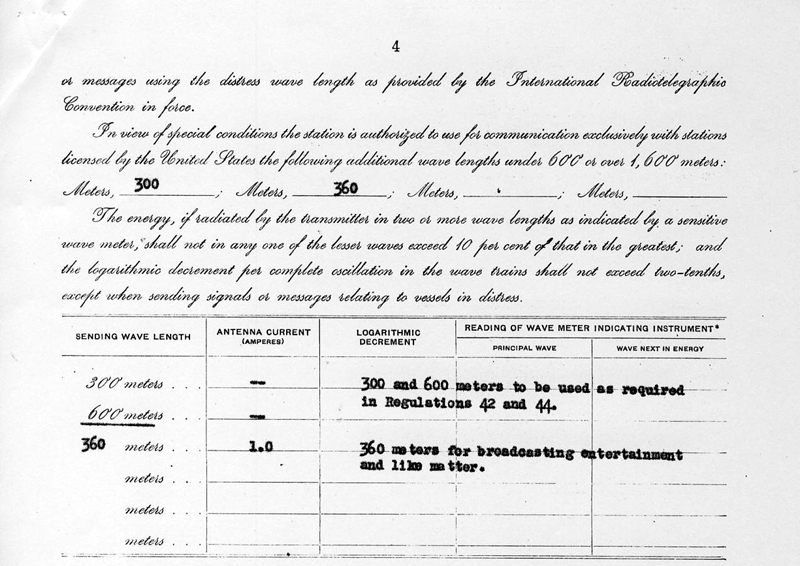 4
or messages using the distress wave length as provided by the International Radiotelegraphic
Convention in force.
In view of special conditions the station is authorized to use for communication exclusively with stations
licensed by the United States the following additional wave lengths under 600 or over 1,600 meters:
Meters, 300 ; Meters, 360 ; Meters, ; Meters,
The energy, if radiated by the transmitter in two or more wave lengths as indicated by a sensitive
wave meter, shall not in any one of the lesser waves exceed 10 per cent of that in the greatest; and
the logarithmic decrement per complete oscillation in the wave trains shall not exceed two-tenths,
except when sending signals or messages relating to vessels in distress.
SENDING WAVE LENGTH
ANTENNA CURRENT
(AMPERES)
LOGARITHMIC
DECREMENT
READING OF WAVE METER INDICATING INSTRUMENT*
PRINCIPAL WAVE
WAVE NEXT IN ENERGY
300 meters . . . — 300 and 600 meters to be used as required
in Regulations 42 and 44.
600 meters . . . —
360 meters . . . 1.0 360 meters for broadcasting entertainment
and like matter.
meters . . .
meters . . .
meters . . .